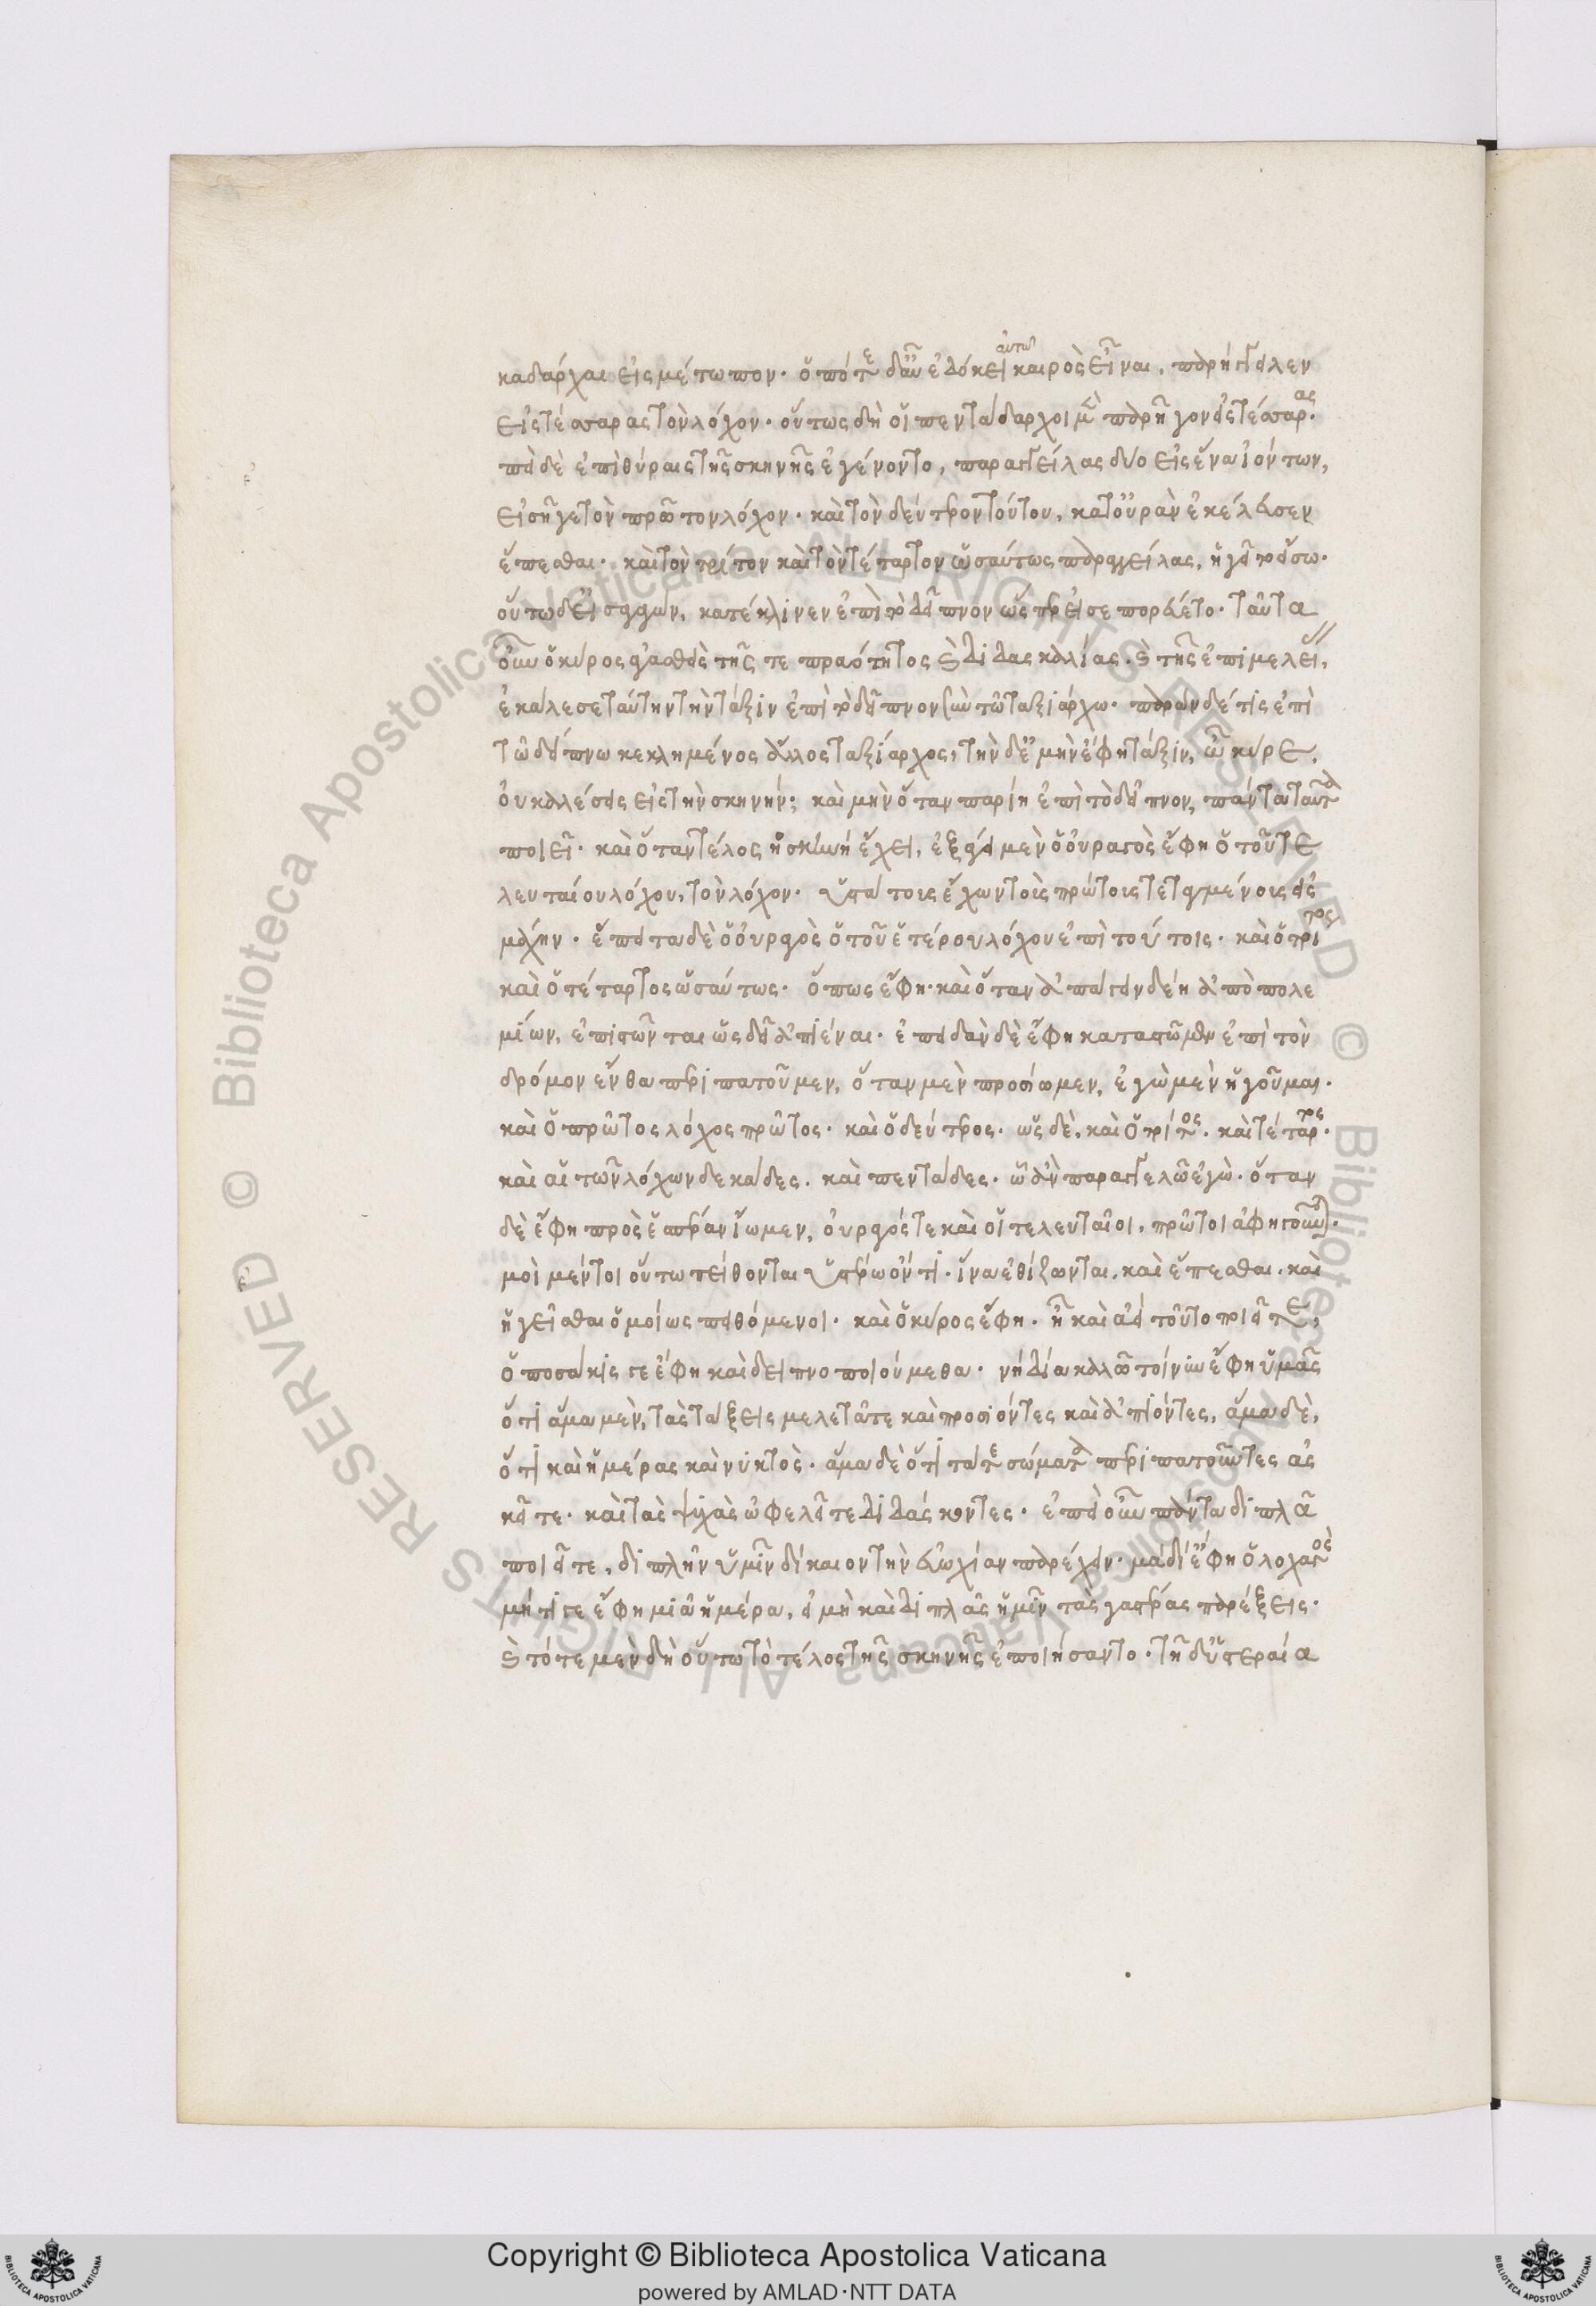 καδάρχαι εἰς μέτωπον. ὁπότε δ' αὖ ἐδόκει αὐτῶ καιρὸς εἶναι, παρήγγειλεν
εἰς τέσσαρας τὸν λόχον. οὕτως δὴ οἱ πεντάδαρχοι μὲν παρῆγον εἰς τέσσαρας.
ἐπεὶ δὲ ἐπὶ θύραις τῆς σκηνῆς ἐγένοντο, παραγγείλας δύο εἰς ἕνα ἰόντων,
εἰσῆγε τὸν πρῶτον λόχον. καὶ τὸν δεύτερον τούτου, κατ' οὐρὰν ἐκέλευσεν
ἕπεσθαι. καὶ τὸν τρίτον καὶ τὸν τέταρτον ὡσαύτως παραγγείλας, ἡγεῖτο εἴσω.
οὕτω δ' εἰσαγαγών, κατέκλινεν ἐπὶ τὸ δεῖπνον ὥσπερ εἰσεπορεύετο. ταῦτα
οὖν ὁ κύρος ἀγασθεὶς τῆς τε πραότητος καὶ διδασκαλίας. καὶ τῆς ἐπιμελεί,
ἐκάλεσε ταύτην τὴν τάξιν ἐπὶ τὸ δεῖπνον σὺν τῶ ταξιάρχω. παρὼν δέ τις ἐπὶ
τῶ δείπνω κεκλημένος ἄλλος ταξίαρχος, τὴν δ' ἐμὴν ἔφη τάξιν, ὦ κύρε,
οὐ καλέσεις εἰς τὴν σκηνήν; καὶ μὴν ὅταν παρίη ἐπὶ τὸ δεῖπνον, πάντα ταῦτα
ποιεῖ. καὶ ὅταν τέλος ἡ σκηνὴ ἔχει, ἐξάγει μὲν ὁ οὐραγὸς ἔφη ὁ τοῦ τε
λευταίου λόχου, τὸν λόχον. ὑστάτους ἔχων τοὺς πρώτους τεταγμένους εἰς
μάχην. ἔπειτα δὲ ὁ οὐραγὸς ὁ τοῦ ἑτέρου λόχου ἐπὶ τούτοις. καὶ ὁ τρίτος
καὶ ὁ τέταρτος ὡσαύτως. ὅπως ἔφη. καὶ ὅταν ἀπάγειν δέη ἀπὸ πολε
μίων, ἐπίστωνται ὡς δεῖ ἀπιέναι. ἐπειδὰν δὲ ἔφη καταστῶμεν ἐπὶ τὸν
δρόμον ἔνθα περιπατοῦμεν, ὅταν μὲν προσίωμεν, ἐγὼ μὲν ἡγοῦμαι.
καὶ ὁ πρῶτος λόχος πρῶτος. καὶ ὁ δεύτερος. ὡς δὲ, καὶ ὁ τρίτος. καὶ τέταρτος.
καὶ αἱ τῶν λόχων δεκάδες. καὶ πεντάδες. ὡἂν παραγγελῶ ἐγὼ. ὅταν
δὲ ἔφη πρὸς ἑσπέραν ἴωμεν, οὐραγός τε καὶ οἱ τελευταῖοι, πρῶτοι ἀφηγοῦνται.
μοὶ μέντοι οὕτω πείθονται ὑστέρω ὄντι. ἵνα ἐθίζωνται. καὶ ἕπεσθαι. καὶ
ἡγεῖσθαι ὁμοίως πειθόμενοι. καὶ ὁ κύρος ἔφη. ἦ καὶ ἀεὶ τοῦτο ποιεῖτε;
ὁποσάκις γε ἔφη καὶ δειπνοποιούμεθα. νὴ δία καλῶ τοίνυν ἔφη ὑμᾶς
ὅτι ἅμα μὲν, τὰς τάξεις μελετᾶτε καὶ προσιόντες καὶ ἀπιόντες, ἅμα δὲ,
ὅτι καὶ ἡμέρας καὶ νυκτὸς. ἅμα δὲ ὅτι τά τε σώματα περιπατοῦντες ἀσ
κεῖτε. καὶ τὰς ψυχὰς ὠφελεῖτε διδάσκοντες. ἐπεὶ οὖν πάντα διπλᾶ
ποιεῖτε, διπλῆν ὑμῖν δίκαιον τὴν εὐωχίαν παρέχειν. μὰ δί' ἔφη ὁ λοχαγὸς
μή τί γε ἔφη μιᾶ ἡμέρα, εἰ μὴ καὶ διπλᾶς ἡμῖν τὰς γαστέρας παρέξεις.
καὶ τότε μὲν δὴ οὕτω τὸ τέλος τῆς σκηνῆς ἐποιήσαντο. τῆ δ' ὑστεραία
Copyright © Biblioteca Apostolica Vaticana
powered by AMLAD·NTT DATA